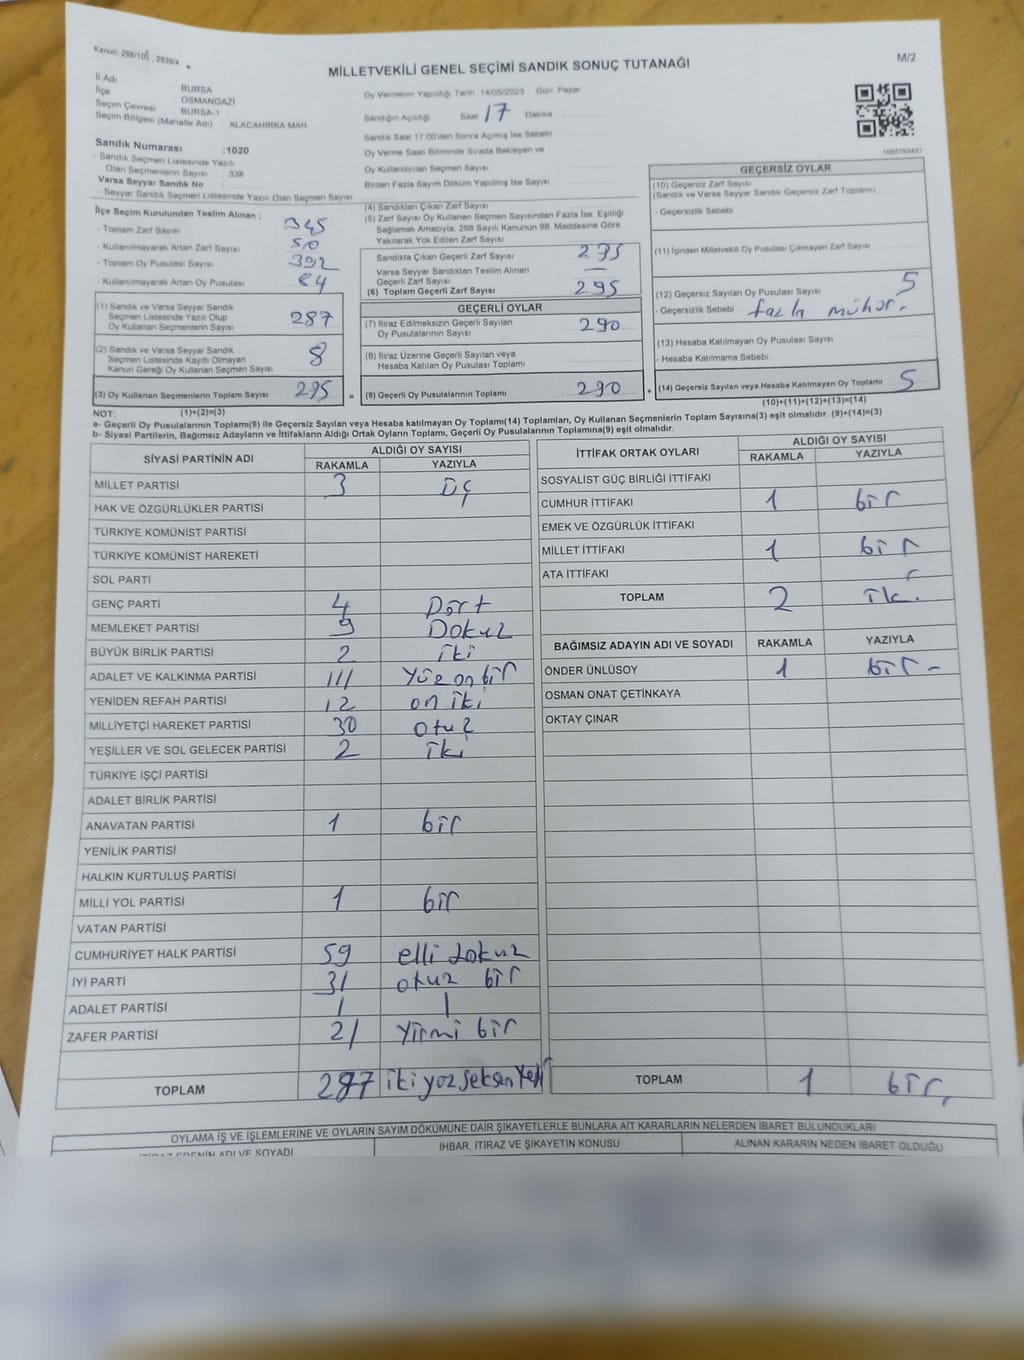 Kanun: 298/105 , 2839/4
M/2
MİLLETVEKİLİ GENEL SEÇİMİ SANDIK SONUÇ TUTANAĞI
İl Adı BURSA
İlçe OSMANGAZİ
Seçim Çevresi BURSA-1
Seçim Bölgesi (Mahalle Adı) ALACAHIRKA MAH.
Sandık Numarası :1020
- Sandık Seçmen Listesinde Yazılı
Olan Seçmenlerin Sayısı 338
Varsa Seyyar Sandık No
- Seyyar Sandık Seçmen Listesinde Yazılı Olan Seçmen Sayısı
Oy Vermenin Yapıldığı Tarih 14/05/2023 Gün Pazar
Sandığın Açıldığı Saat 17 Dakika
Sandık Saat 17:00'den Sonra Açılmış İse Sebebi
Oy Verme Saati Bitiminde Sırada Bekleyen ve
Oy Kullandırılan Seçmen Sayısı
Birden Fazla Sayım Döküm Yapılmış İse Sayısı
İlçe Seçim Kurulundan Teslim Alınan :
- Toplam Zarf Sayısı 345
- Kullanılmayarak Artan Zarf Sayısı 50
- Toplam Oy Pusulası Sayısı
- Kullanılmayarak Artan Oy Pusulası
(1) Sandık ve Varsa Seyyar Sandık
Seçmen Listesinde Yazılı Olup
Oy Kullanan Seçmenlerin Sayısı 287
(2) Sandık ve Varsa Seyyar Sandık
Seçmen Listesinde Kayıtlı Olmayan
Kanun Gereği Oy Kullanan Seçmen Sayısı 8
(3) Oy Kullanan Seçmenlerin Toplam Sayısı 295 =
(1)+(2)=(3)
(4) Sandıktan Çıkan Zarf Sayısı
(5) Zarf Sayısı Oy Kullanan Seçmen Sayısından Fazla İse, Eşitliği
Sağlamak Amacıyla, 298 Sayılı Kanunun 98. Maddesine Göre
Yakılarak Yok Edilen Zarf Sayısı
Sandıkta Çıkan Geçerli Zarf Sayısı 295
Varsa Seyyar Sandıktan Teslim Alınan
Geçerli Zarf Sayısı —
(6) Toplam Geçerli Zarf Sayısı 295
GEÇERLİ OYLAR
(7) İtiraz Edilmeksizin Geçerli Sayılan
Oy Pusulalarının Sayısı 290
(8) İtiraz Üzerine Geçerli Sayılan veya
Hesaba Katılan Oy Pusulası Toplamı
(9) Geçerli Oy Pusulalarının Toplamı 290 +
GEÇERSİZ OYLAR
(10) Geçersiz Zarf Sayısı
(Sandık ve Varsa Seyyar Sandık Geçersiz Zarf Toplamı)
- Geçersizlik Sebebi
(11) İçinden Milletvekili Oy Pusulası Çıkmayan Zarf Sayısı
(12) Geçersiz Sayılan Oy Pusulası Sayısı 5
- Geçersizlik Sebebi fazla mühür.
(13) Hesaba Katılmayan Oy Pusulası Sayısı
- Hesaba Katılmama Sebebi
(14) Geçersiz Sayılan veya Hesaba Katılmayan Oy Toplamı 5
(10)+(11)+(12)+(13)=(14)
NOT:
a- Geçerli Oy Pusulalarının Toplamı(9) ile Geçersiz Sayılan veya Hesaba katılmayan Oy Toplamı(14) Toplamları, Oy Kullanan Seçmenlerin Toplam Sayısına(3) eşit olmalıdır. (9)+(14)=(3)
b- Siyasi Partilerin, Bağımsız Adayların ve İttifakların Aldığı Ortak Oyların Toplamı, Geçerli Oy Pusulalarının Toplamına(9) eşit olmalıdır.
SİYASİ PARTİNİN ADI ALDIĞI OY SAYISI
RAKAMLA YAZIYLA
MİLLET PARTİSİ 3 üç
HAK VE ÖZGÜRLÜKLER PARTİSİ
TÜRKİYE KOMÜNİST PARTİSİ
TÜRKİYE KOMÜNİST HAREKETİ
SOL PARTİ
GENÇ PARTİ 4 Dört
MEMLEKET PARTİSİ 9 Dokuz
BÜYÜK BİRLİK PARTİSİ 2 iki
ADALET VE KALKINMA PARTİSİ 111 yüz on bir
YENİDEN REFAH PARTİSİ 12 on iki
MİLLİYETÇİ HAREKET PARTİSİ 30 otuz
YEŞİLLER VE SOL GELECEK PARTİSİ 2 iki
TÜRKİYE İŞÇİ PARTİSİ
ADALET BİRLİK PARTİSİ
ANAVATAN PARTİSİ 1 bir
YENİLİK PARTİSİ
HALKIN KURTULUŞ PARTİSİ
MİLLİ YOL PARTİSİ 1 bir
VATAN PARTİSİ
CUMHURİYET HALK PARTİSİ 59 elli dokuz
İYİ PARTİ 31 otuz bir
ADALET PARTİSİ | |
ZAFER PARTİSİ 21 yirmi bir
TOPLAM 287 iki yüz seksen yedi
İTTİFAK ORTAK OYLARI ALDIĞI OY SAYISI
RAKAMLA YAZIYLA
SOSYALİST GÜÇ BİRLİĞİ İTTİFAKI
CUMHUR İTTİFAKI 1 bir
EMEK VE ÖZGÜRLÜK İTTİFAKI
MİLLET İTTİFAKI 1 bir
ATA İTTİFAKI
TOPLAM 2 iki
BAĞIMSIZ ADAYIN ADI VE SOYADI RAKAMLA YAZIYLA
ÖNDER ÜNLÜSOY 1 bir -
OSMAN ONAT ÇETİNKAYA
OKTAY ÇINAR
TOPLAM 1 bir
OYLAMA İŞ VE İŞLEMLERİNE VE OYLARIN SAYIM DÖKÜMÜNE DAİR ŞİKAYETLERLE BUNLARA AİT KARARLARIN NELERDEN İBARET BULUNDUKLARI
ADI VE SOYADI İHBAR, İTİRAZ VE ŞİKAYETİN KONUSU ALINAN KARARIN NEDEN İBARET OLDUĞU